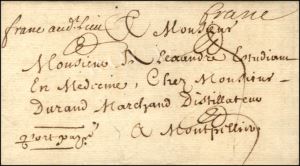 franc
franc aud. Lieu A Monsieur
Monsieur Alexandre Estudiant
En Medecine, Chez Monsieur
Durand Marchand Distillateur
port payé A Montpellier